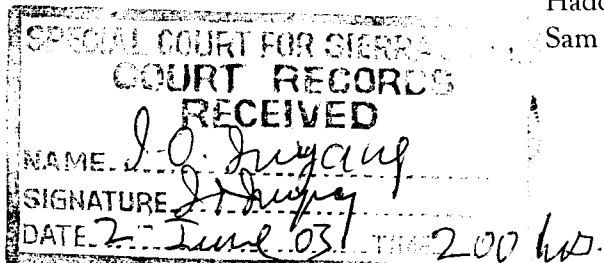 Sam
SPECIAL COURT FOR SIERRA
COURT RECORDS
RECEIVED
NAME. I.O.
SIGNATURE
DATE. 2 June 03. TIME 200 hrs.